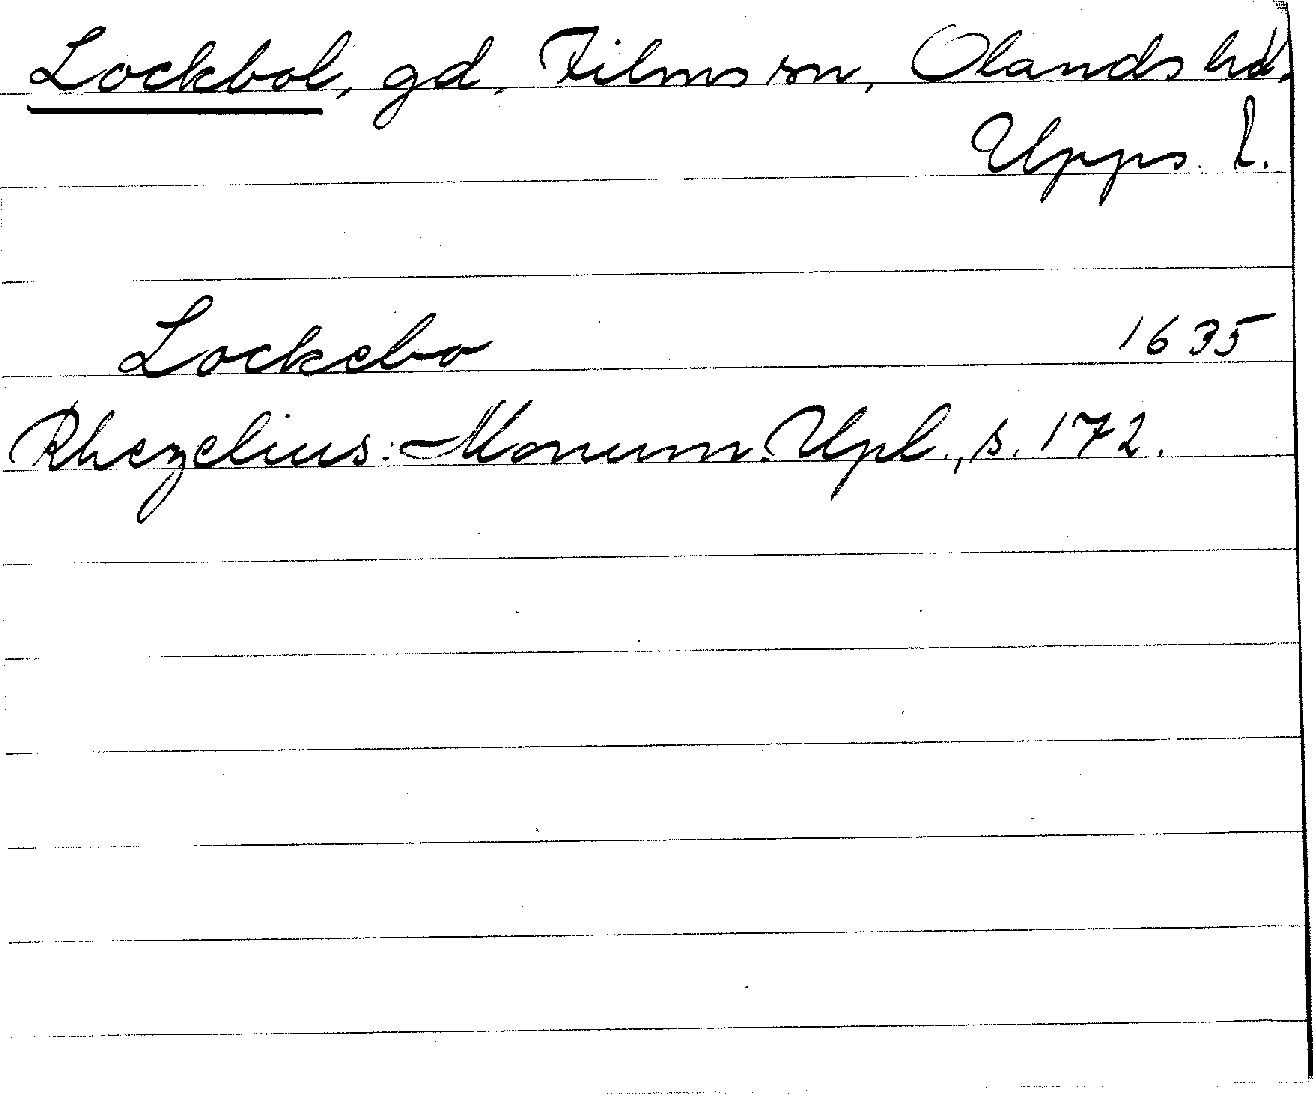 Lockbol, gd, Films sn, Olands hd.
Upps. l.
Lockebo 1635
Rhezelius: Monum. Upl., s. 172.